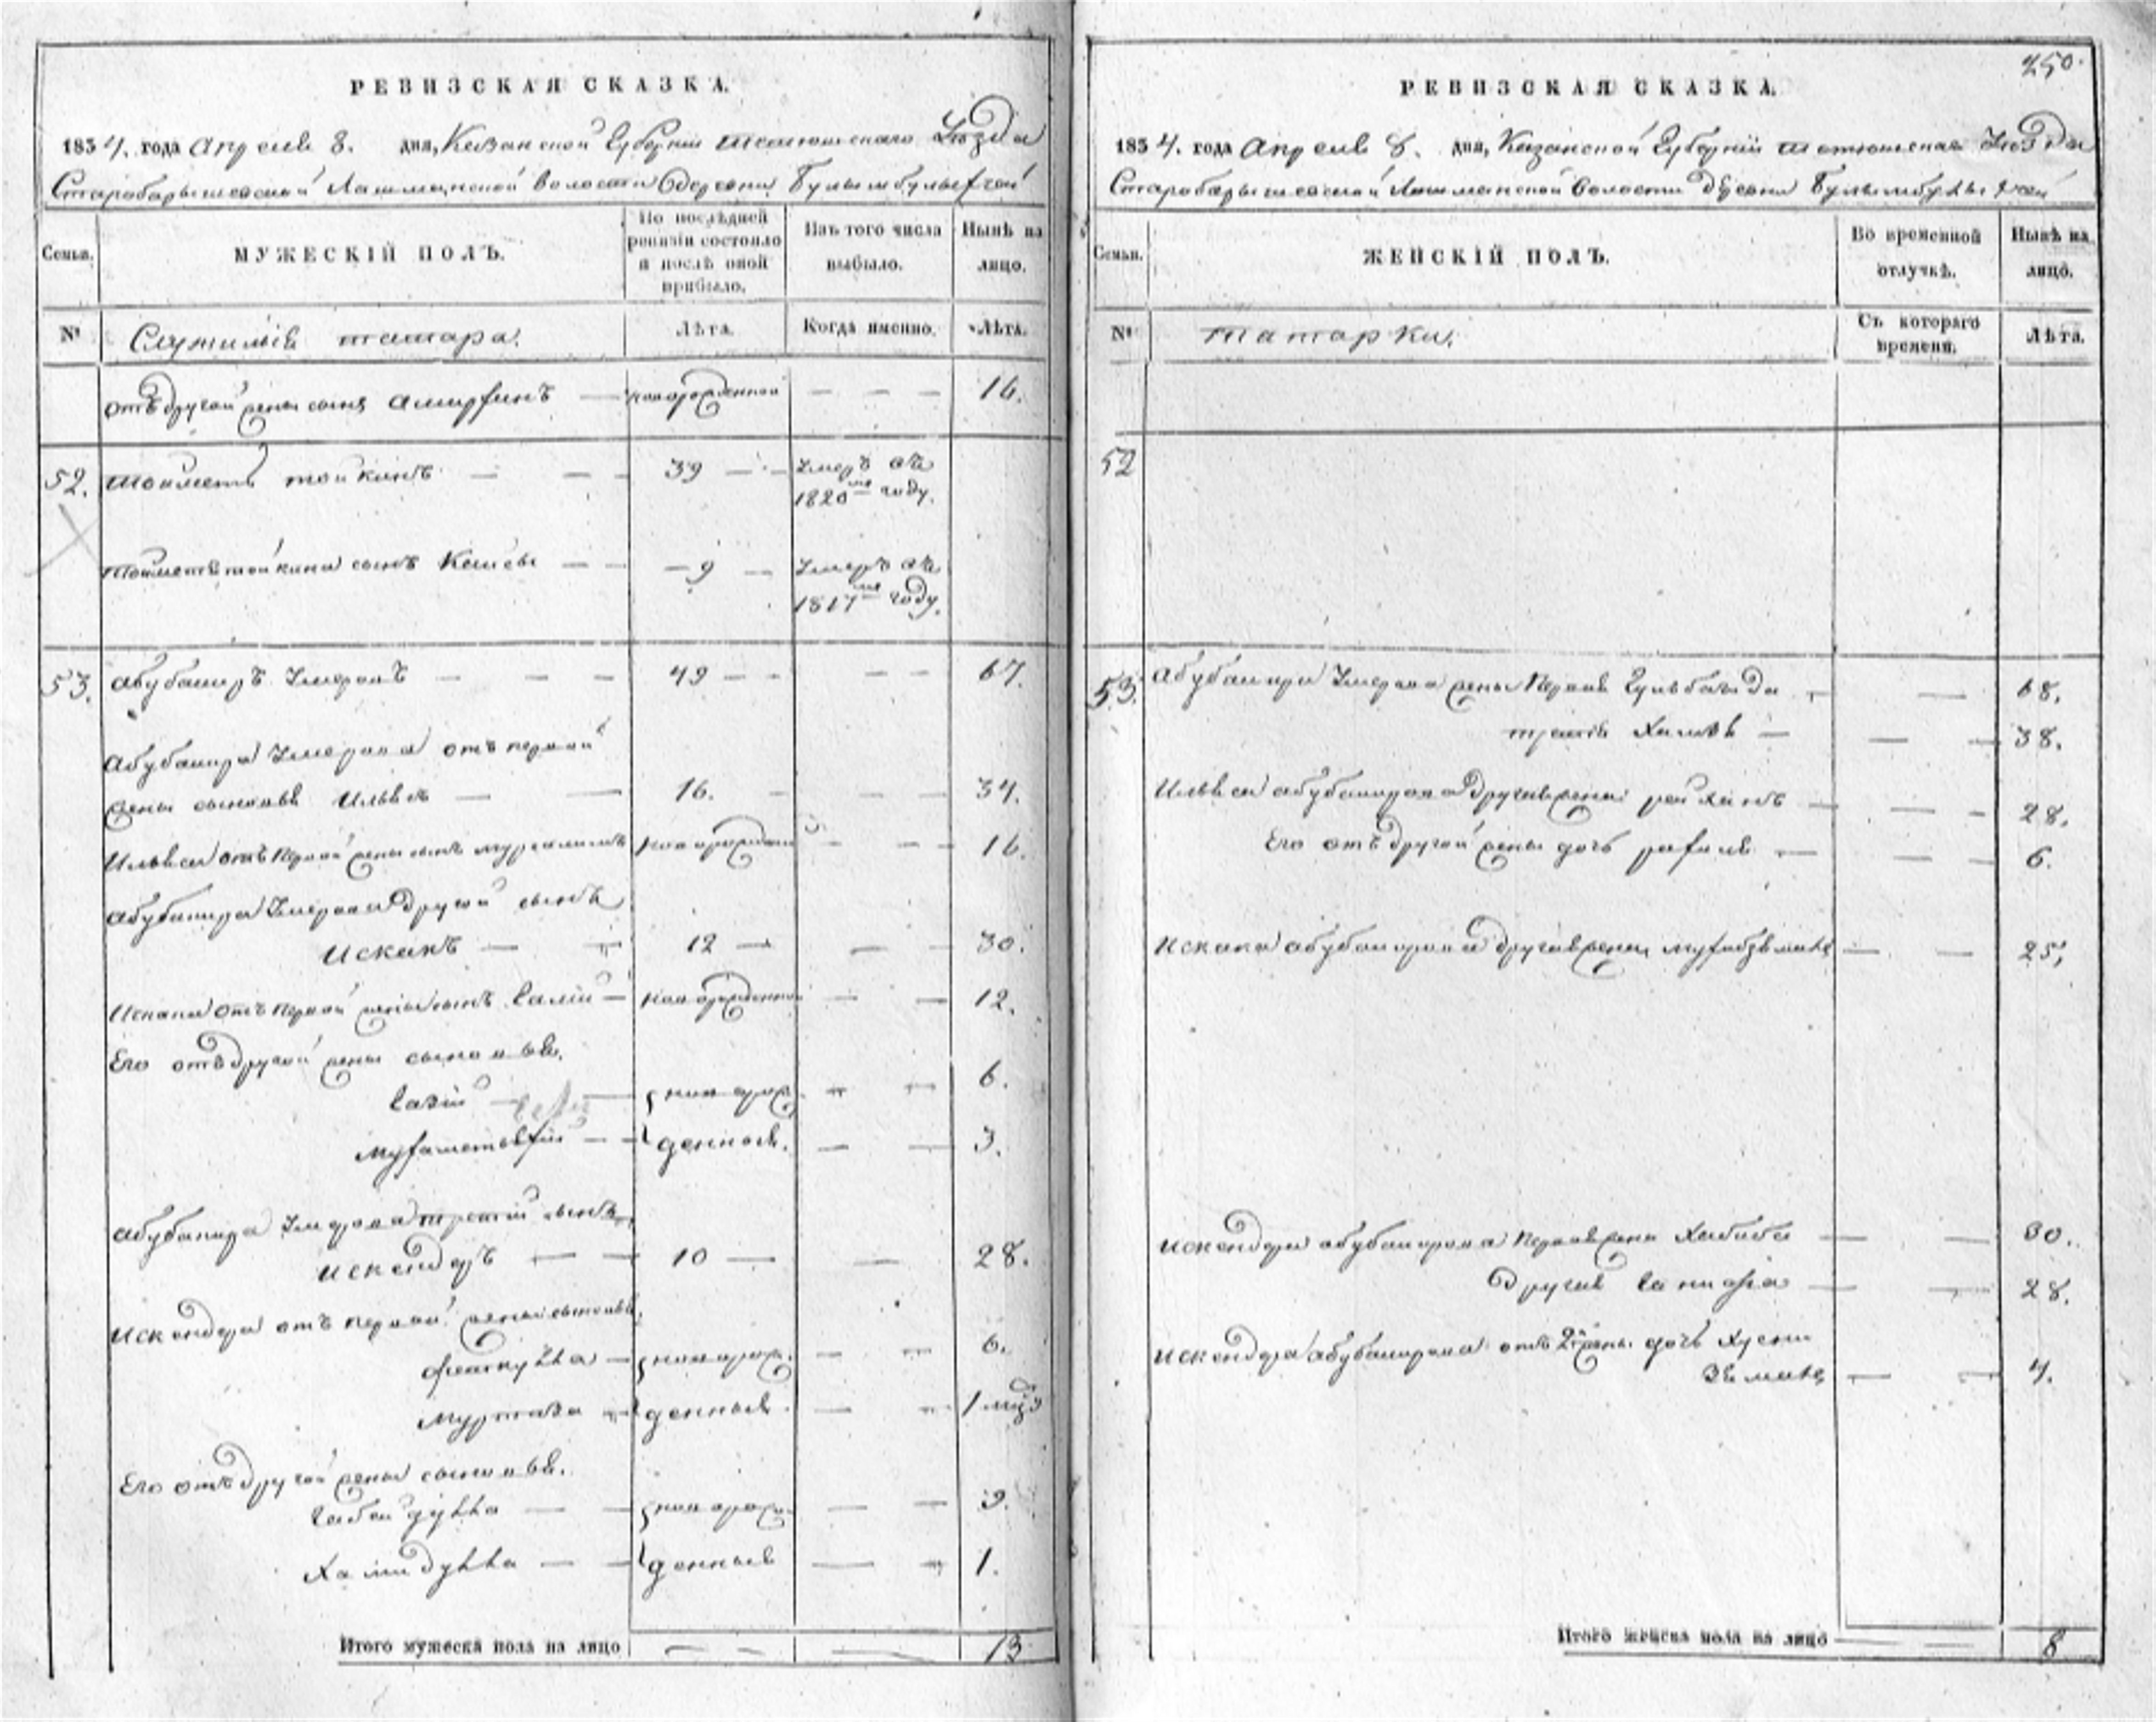 РЕВИЗСКАЯ СКАЗКА.
1834. года Апреля 8. дня, Казанской Губернiи тетюшскаго Уѣзда
Старобарышевской Лашманской волости деревни
Семьи.
МУЖЕСКIЙ ПОЛЪ.
По послѣдней ревизiи состояло и послѣ оной прибыло.
Изъ того числа выбыло.
Нынѣ на лицо.
№
Служилыя татара.
Лѣта.
Когда именно.
Лѣта.
отъ другой жены сынъ новорожденной — — — 16.
52. тоиметь тоикинъ — — 39 — — Умеръ въ
1820мъ году.
тоиметя тоикина сынъ — — — 9 — Умеръ въ
1817мъ году.
53. абубакиръ Умеровъ — — — 49 — — — — 67.
Абубакира Умерова отъ первой
жены сыновья Ильяс — — 16. — — — 34.
Ильяса отъ первой жены сынъ новорожденой — — 16.
Абубакира Умерова другой сынъ
Искакъ — — 12 — — — 30.
Искака отъ первой жены сынъ валiй — новорожденной — — 12.
Его отъ другой жены сыновья.
новорож — — 6.
— денныя. — — 3.
абубакира Умерова третiй сынъ
искендеръ — — 10 — — 28.
Искендера отъ первой жены сыновья.
фаткулла — новорож. — — 6.
муртаза — денныя. — — 1 мцз
Его отъ другой жены сыновья.
габейдулла — — новорож — — 3.
Хамидулла — — денныя — — 1.
Итого мужеска пола на лицо — — 13
250.
РЕВИЗСКАЯ СКАЗКА.
1834. года Апреля 8. дня, Казанской Губернiи тетюшскаго Уѣзда
Старобарышевской Лашманской волости деревни
Семьи.
ЖЕНСКIЙ ПОЛЪ.
Во временной отлучкѣ.
Нынѣ на лицо.
№
татарки.
Съ котораго времени.
Лѣта.
52
53. Абубакира Умерова жены первая — — 68.
третiя — — — 38.
Ильяса абубакирова другая жена — — — 28.
Его отъ другой жены дочь — — — 6.
Искака абубакирова другая жена — — 25,
искендера абубакирова первая жена Хабиба — — 30.
другая — — — 28.
искендера абубакирова отъ 2й жены дочь Хусни
— — 4.
Итого женска пола на лицо — — 8